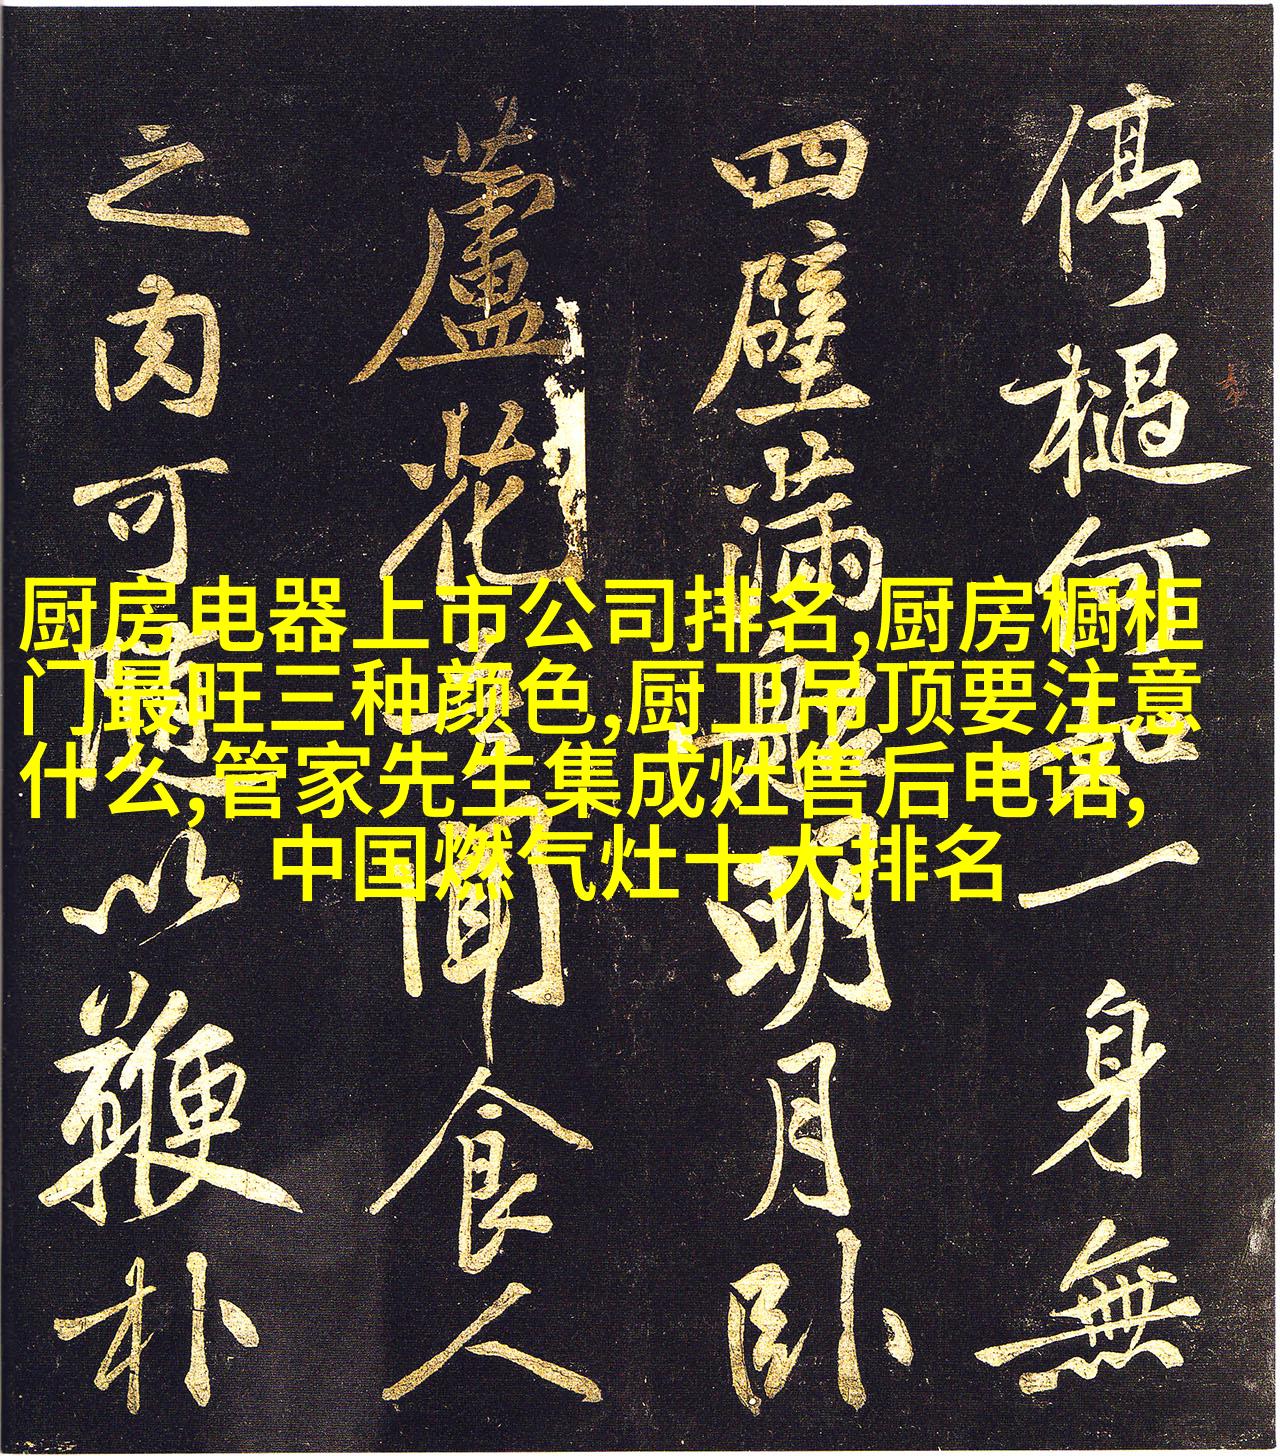 厨房电器上市公司排名,厨房橱柜
门最旺三种颜色,厨卫吊顶要注意
什么,管家先生集成灶售后电话,
中国燃气灶十大排名
停檛何一身無
四壁滿明月卧
蘆花聞食人
之肉可以鞭朴